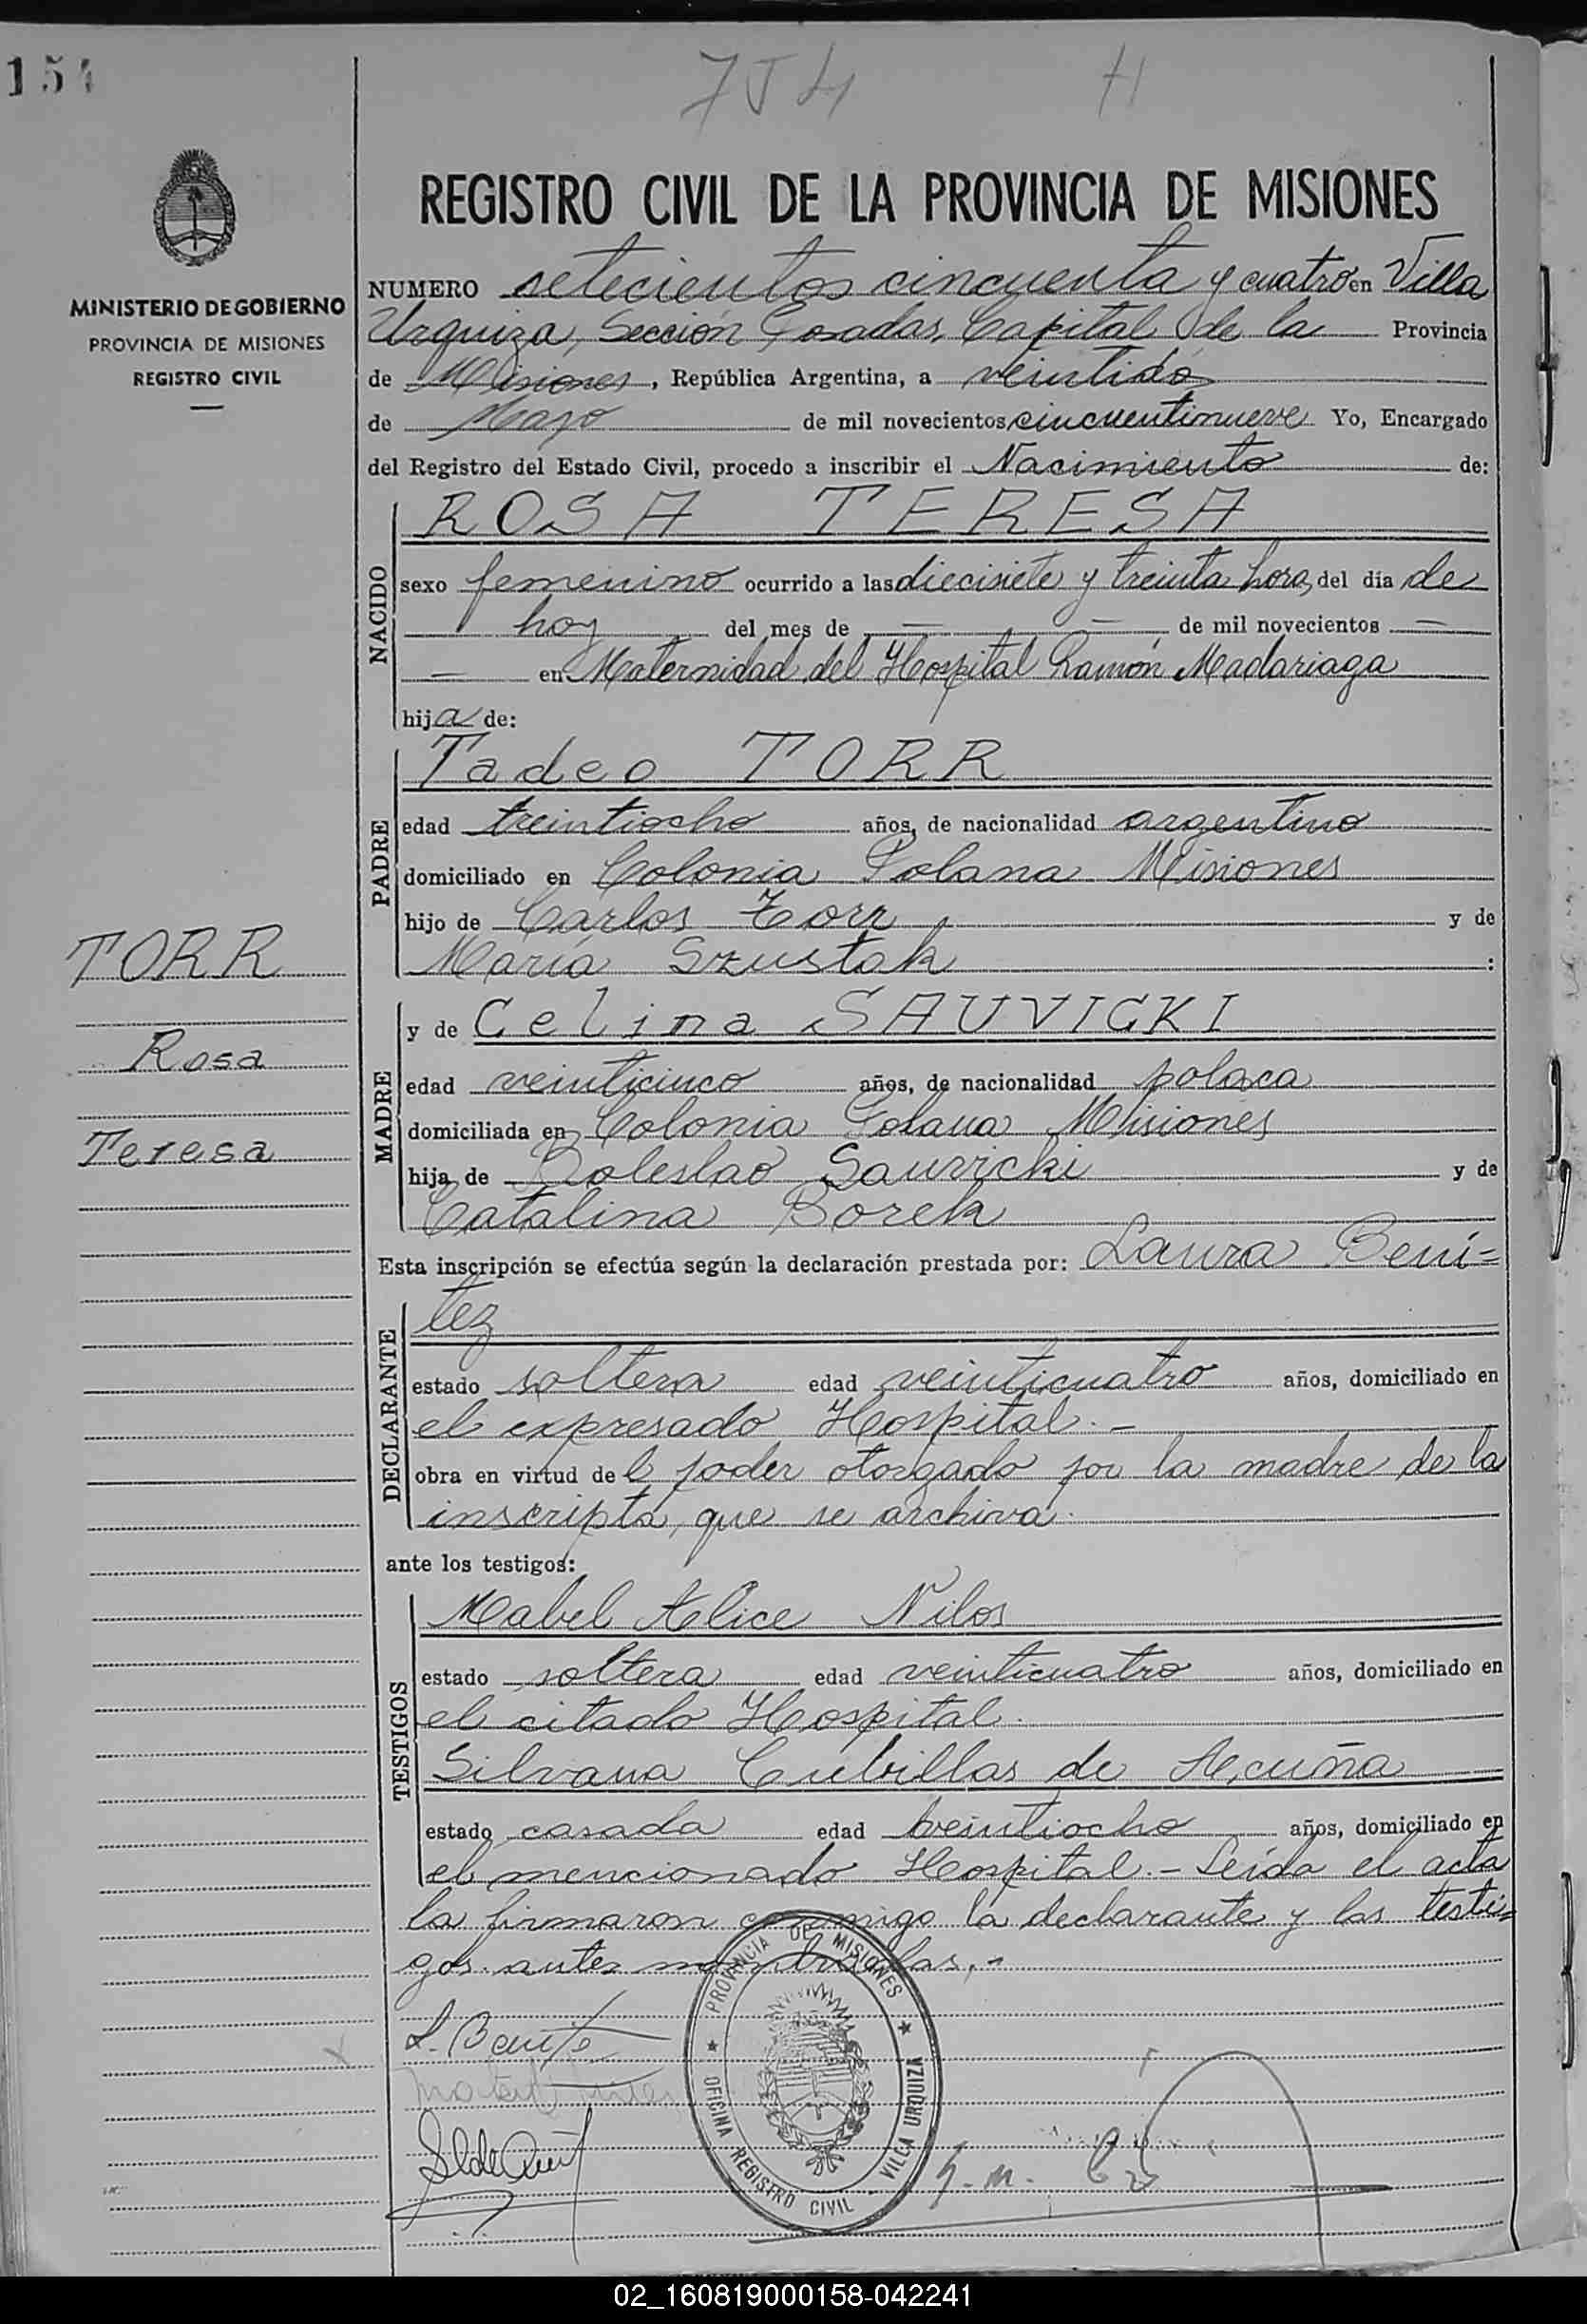 154
754 H
MINISTERIO DE GOBIERNO
PROVINCIA DE MISIONES
REGISTRO CIVIL
REGISTRO CIVIL DE LA PROVINCIA DE MISIONES
NUMERO setecientos cincuenta y cuatro en Villa
Urquiza, Sección Posadas, Capital de la Provincia
de Misiones, República Argentina, a veintidós
de Mayo de mil novecientos cincuentinueve Yo, Encargado
del Registro del Estado Civil, procedo a inscribir el Nacimiento de:
NACIDO
ROSA TERESA
sexo femenino ocurrido a las diecisiete y treinta horas, del día de
hoy del mes de — — de mil novecientos —
— en Maternidad del Hospital Ramón Madariaga
hija de:
PADRE
Tadeo TORR
edad treintiocho años, de nacionalidad argentino
domiciliado en Colonia Polana Misiones
hijo de Carlos Torr y de
María Szustak :
TORR
Rosa
Teresa
MADRE
y de Celina SAUVICKI
edad veinticinco años, de nacionalidad polaca
domiciliada en Colonia Polana Misiones
hija de Boleslao Sauvicki y de
Catalina Borek
Esta inscripción se efectúa según la declaración prestada por: Laura Bení=
DECLARANTE
tez
estado soltera edad veinticuatro años, domiciliado en
el expresado Hospital.-
obra en virtud del poder otorgado por la madre de la
inscripta, que se archiva.
ante los testigos:
TESTIGOS
Mabel Alice Nilos
estado soltera edad veinticuatro años, domiciliado en
el citado Hospital.
Silvana Cubillas de Acuña
estado casada edad treintiocho años, domiciliado en
el mencionado Hospital.- Leída el acta
la firmaron conmigo la declarante y las testi=
gos antes nombradas.-
L. Benítez
PROVINCIA DE MISIONES
OFICINA REGISTRO CIVIL - VILLA URQUIZA
02_160819000158-042241